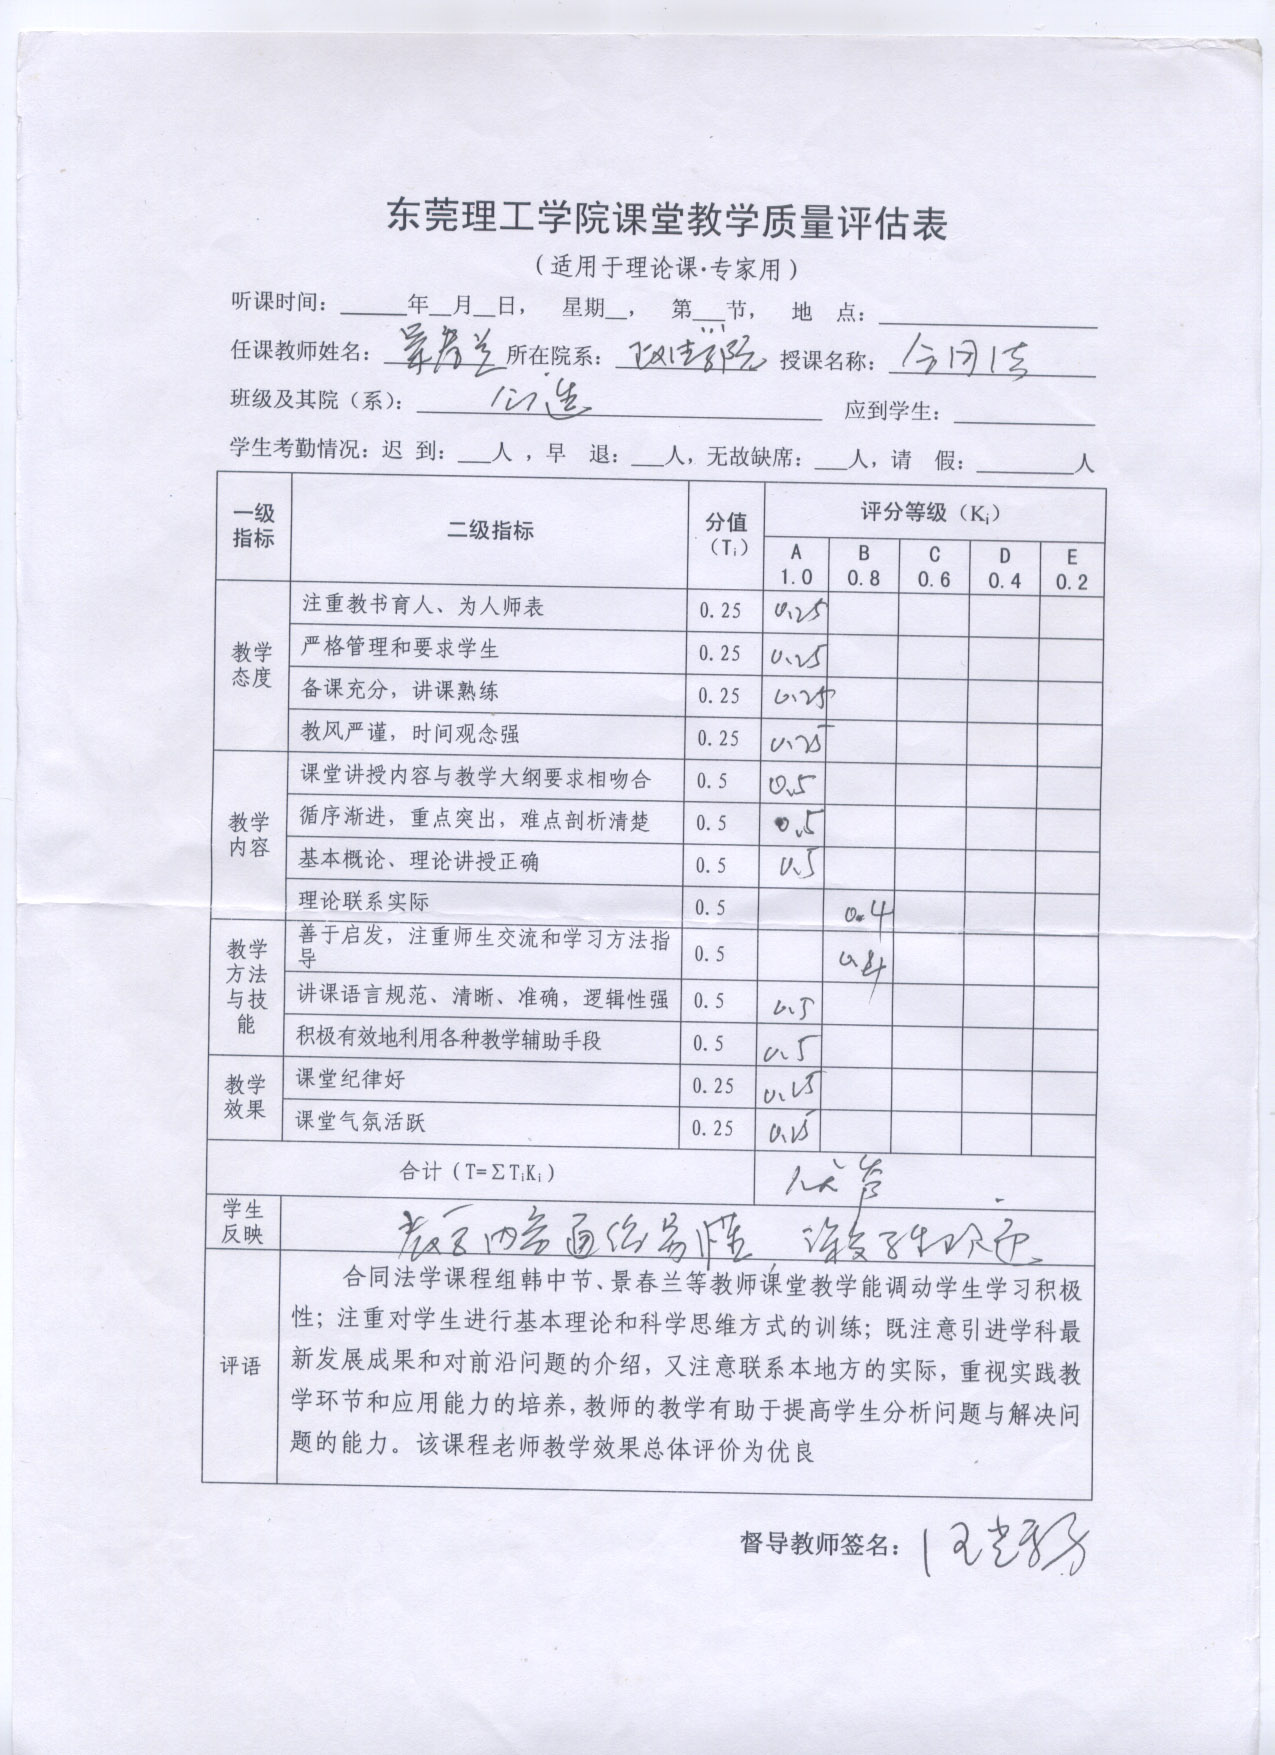 东莞理工学院课堂教学质量评估表
（适用于理论课·专家用）
听课时间：______年__月__日，　星期__，　第___节，　地　点：
任课教师姓名：景春兰 所在院系：政法学院 授课名称：合同法
班级及其院（系）：公选　应到学生：
学生考勤情况：迟 到：___人 ，早　退：___人，无故缺席：___人，请　假：________人
一级指标　二级指标　分值（Ti）　评分等级（Ki）
A 1.0　B 0.8　C 0.6　D 0.4　E 0.2
教学态度
注重教书育人、为人师表　0.25　0.25
严格管理和要求学生　0.25　0.25
备课充分，讲课熟练　0.25　0.25
教风严谨，时间观念强　0.25　0.25
教学内容
课堂讲授内容与教学大纲要求相吻合　0.5　0.5
循序渐进，重点突出，难点剖析清楚　0.5　0.5
基本概论、理论讲授正确　0.5　0.5
理论联系实际　0.5　0.4
教学方法与技能
善于启发，注重师生交流和学习方法指导　0.5　0.4
讲课语言规范、清晰、准确，逻辑性强　0.5　0.5
积极有效地利用各种教学辅助手段　0.5　0.5
教学效果
课堂纪律好　0.25　0.25
课堂气氛活跃　0.25　0.25
合计（T=ΣTiKi）
学生反映　教学内容通俗易懂，深受学生欢迎
评语
合同法学课程组韩中节、景春兰等教师课堂教学能调动学生学习积极
性；注重对学生进行基本理论和科学思维方式的训练；既注意引进学科最
新发展成果和对前沿问题的介绍，又注意联系本地方的实际，重视实践教
学环节和应用能力的培养，教师的教学有助于提高学生分析问题与解决问
题的能力。该课程老师教学效果总体评价为优良
督导教师签名：